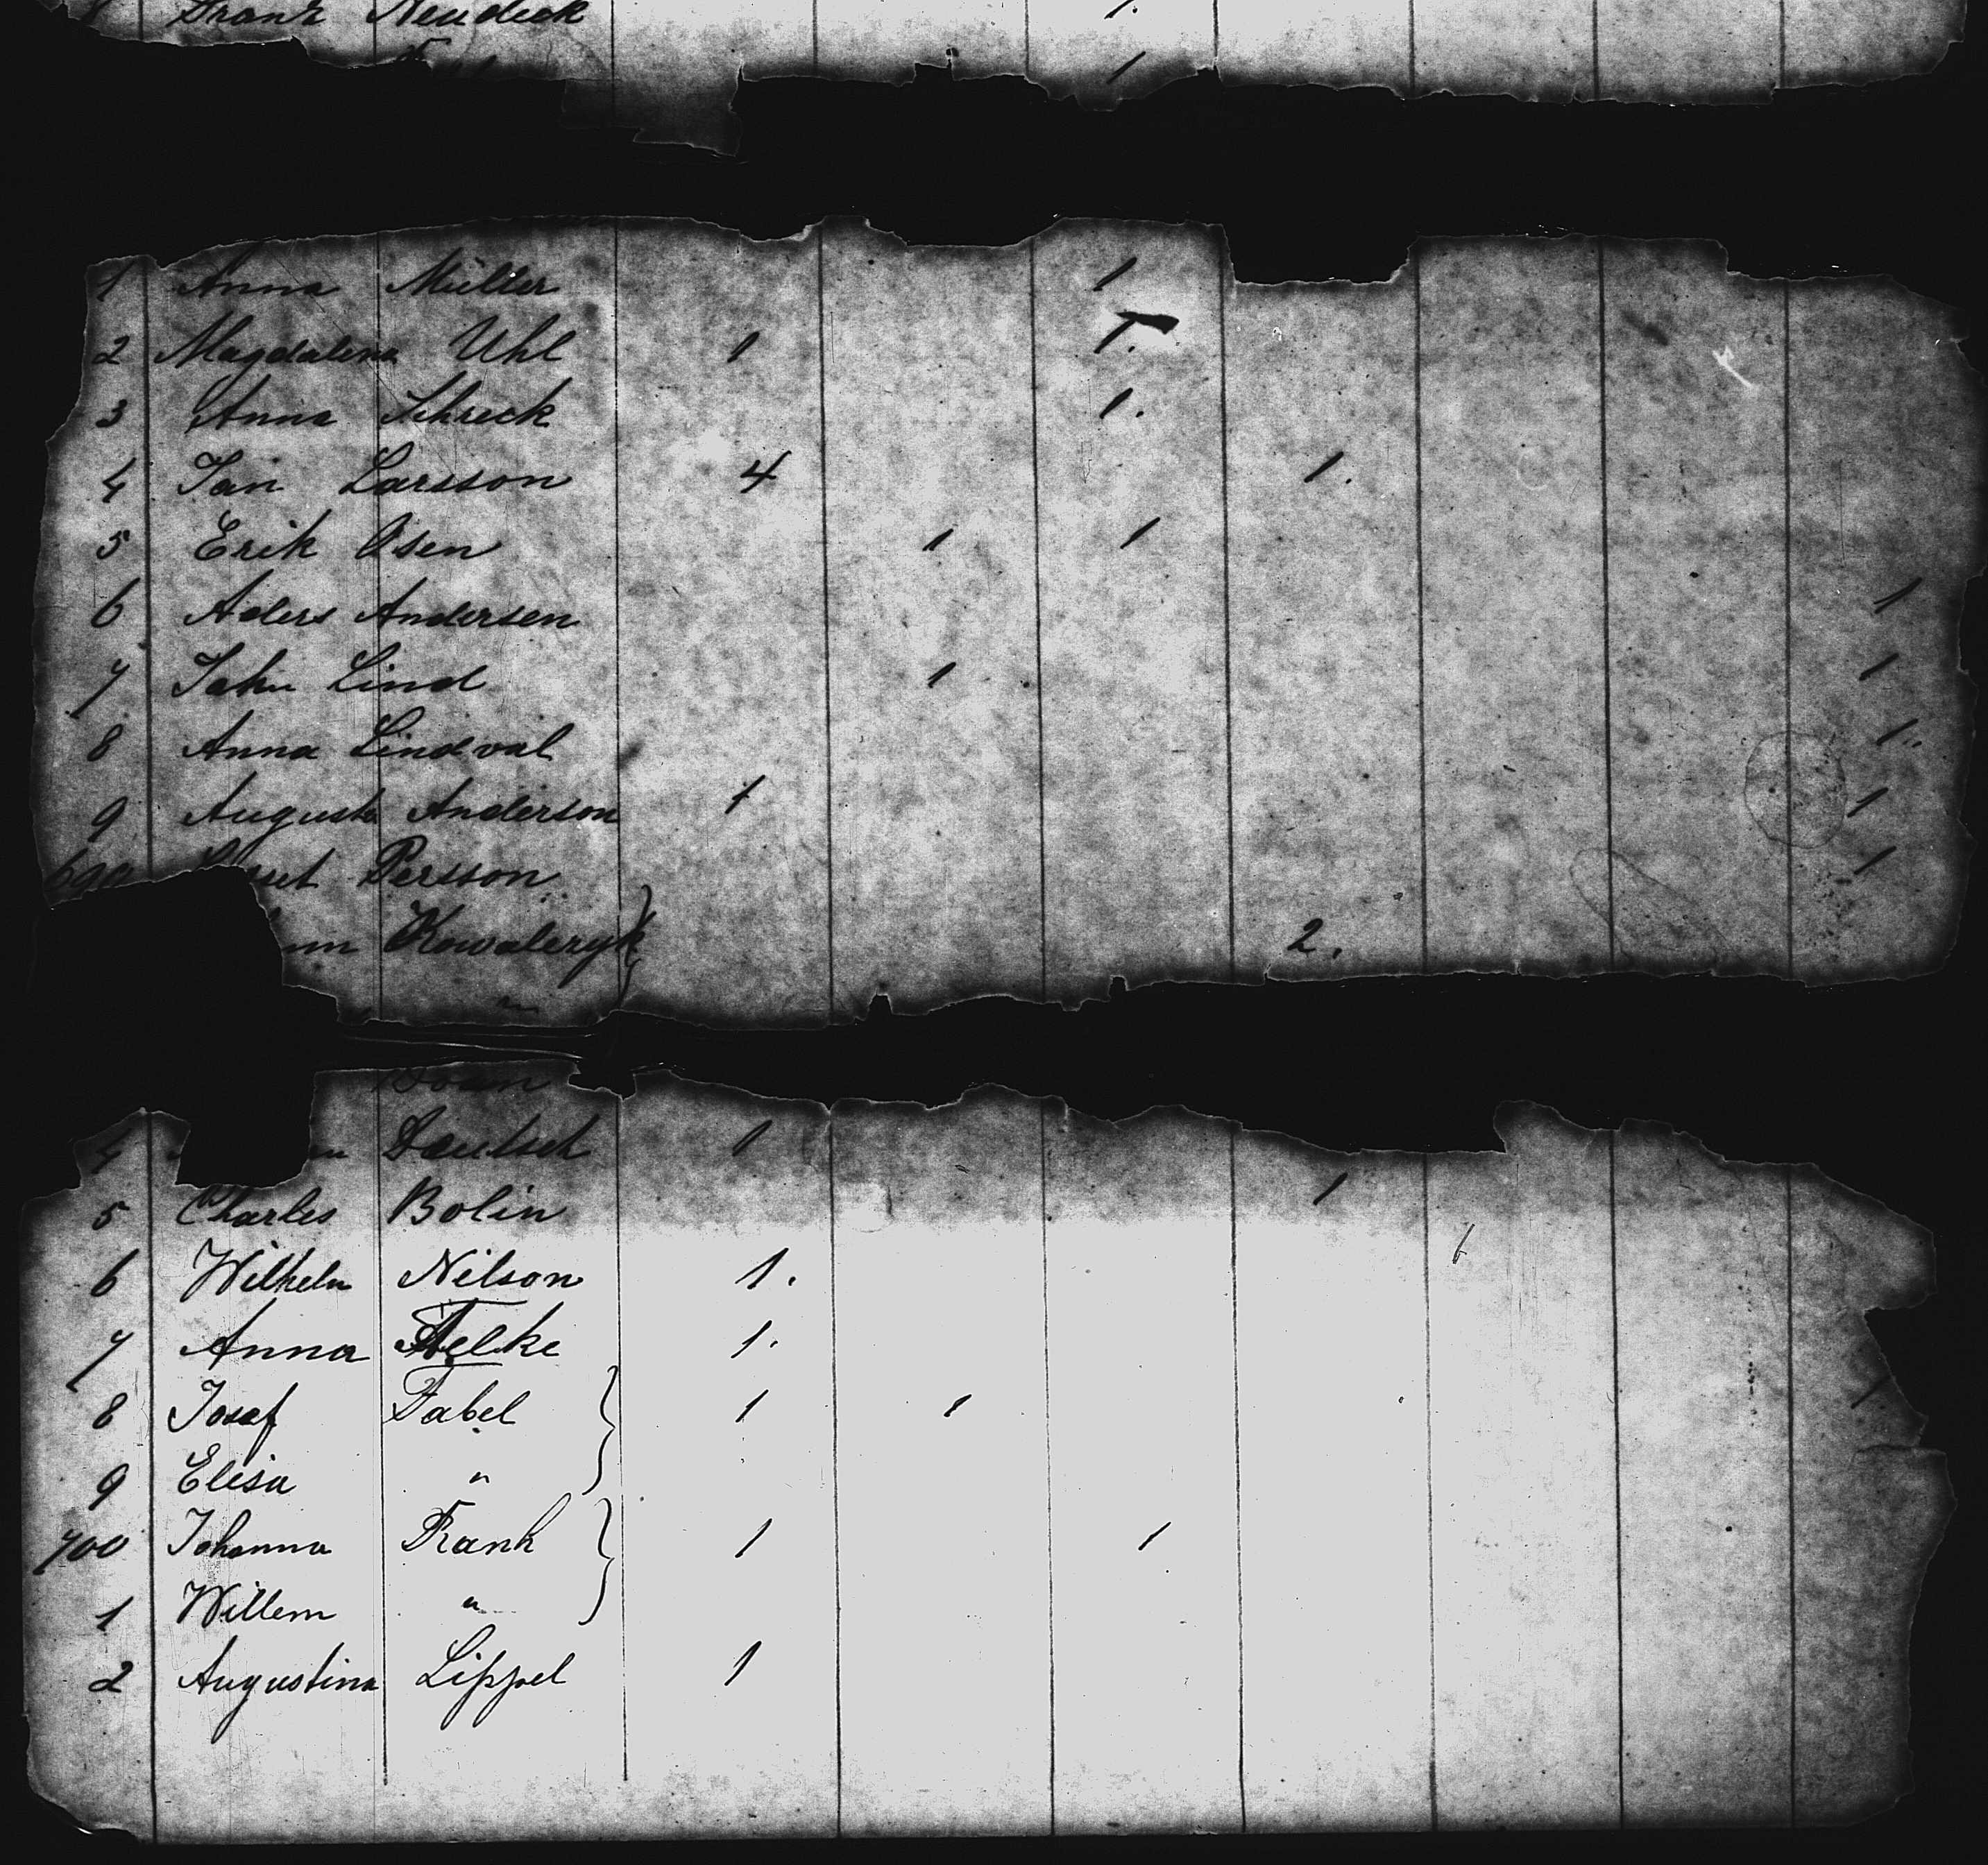 Franz Neudeck 1.
1
1 Anna Müller 1
2 Magdalena Uhl 1 1.
3 Anna Schreck 1.
4 Jan Larsson 4 1.
5 Erik Osen 1 1
6 Aders Andersen 1
7 John Lind 1 1
8 Anna Lindval 1.
9 Augusta Anderson 1 1
690 Persson 1
Kowaleryk } 2.
"
4 1
5 Charles Bolin 1
6 Wilhelm Nilson 1.
7 Anna 1.
8 Josef Fabel } 1 1 1
9 Elisa "
700 Johanna Frank } 1 1
1 Willem "
2 Augustina Lippel 1